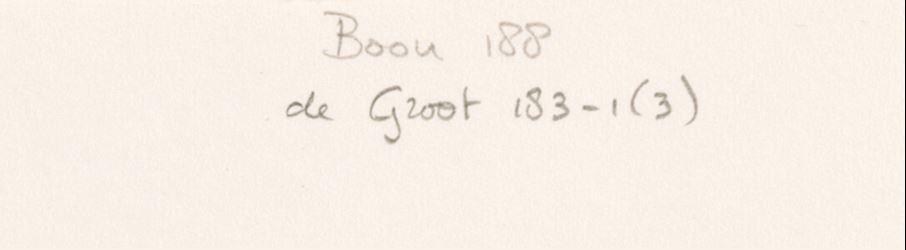 Boon 188
de Groot 183-1(3)